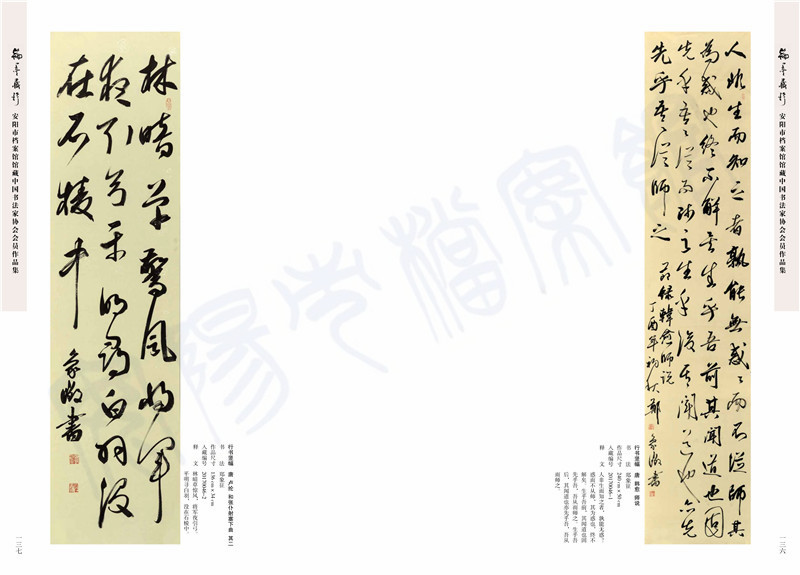 安阳市档案馆馆藏中国书法家协会会员作品集
人非生而知之者孰能無惑々而不從師其
為惑也終不解矣生乎吾前其聞道也固
先乎吾々從而師之生乎後其聞道也亦先
先乎吾々從師之
節錄韓愈師說
丁酉年初秋鄭
象徵書
行书竖幅 唐 韩愈 师说
书 法 郑象征
作品尺寸 240 cm × 50 cm
入藏编号 20170046-1
释 文 人非生而知之者，孰能无惑？
惑而不从师，其为惑也，终不
解矣。生乎吾前，其闻道也固
先乎吾，吾从而师之，生乎吾
后，其闻道也亦先乎吾，吾从
而师之。
一三六
林暗草驚風將軍
夜引弓平明尋白羽沒
在石棱中
象徵書
行书竖幅 唐 卢纶 和张仆射塞下曲 其二
书 法 郑象征
作品尺寸 136 cm × 34 cm
入藏编号 20170046-2
释 文 林暗草惊风，将军夜引弓。
平明寻白羽，没在石棱中。
安阳市档案馆馆藏中国书法家协会会员作品集
一三七